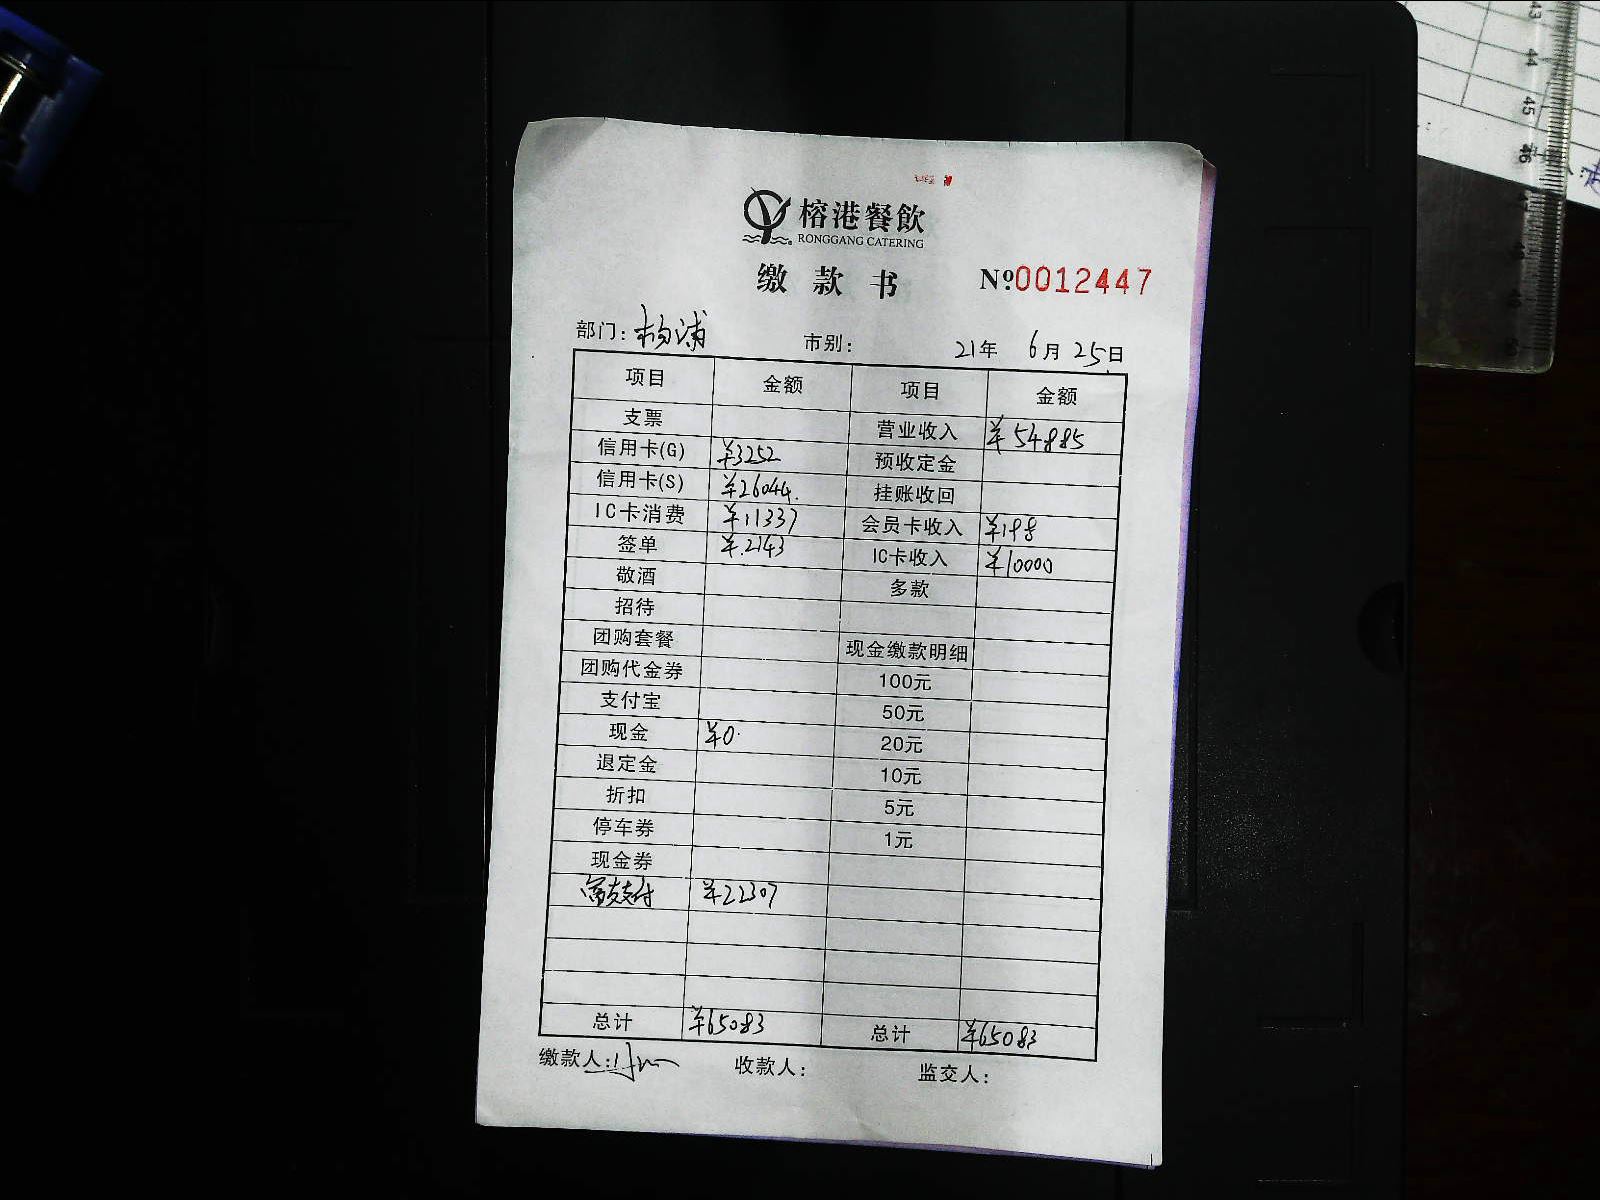 榕港餐飲
RONGGANG CATERING
缴款书 №0012447
部门: 杨浦 市别: 21年 6月 25日
项目 金额 项目 金额
支票 营业收入 ¥54885
信用卡(G) ¥3252 预收定金
信用卡(S) ¥26044. 挂账收回
IC卡消费 ¥11337 会员卡收入 ¥198
签单 ¥2143 IC卡收入 ¥10000
敬酒 多款
招待
团购套餐 现金缴款明细
团购代金券 100元
支付宝 50元
现金 ¥0 20元
退定金 10元
折扣 5元
停车券 1元
现金券
支付 ¥22307
总计 ¥65083 总计 ¥65083
缴款人: 收款人: 监交人:
43
44
45
46